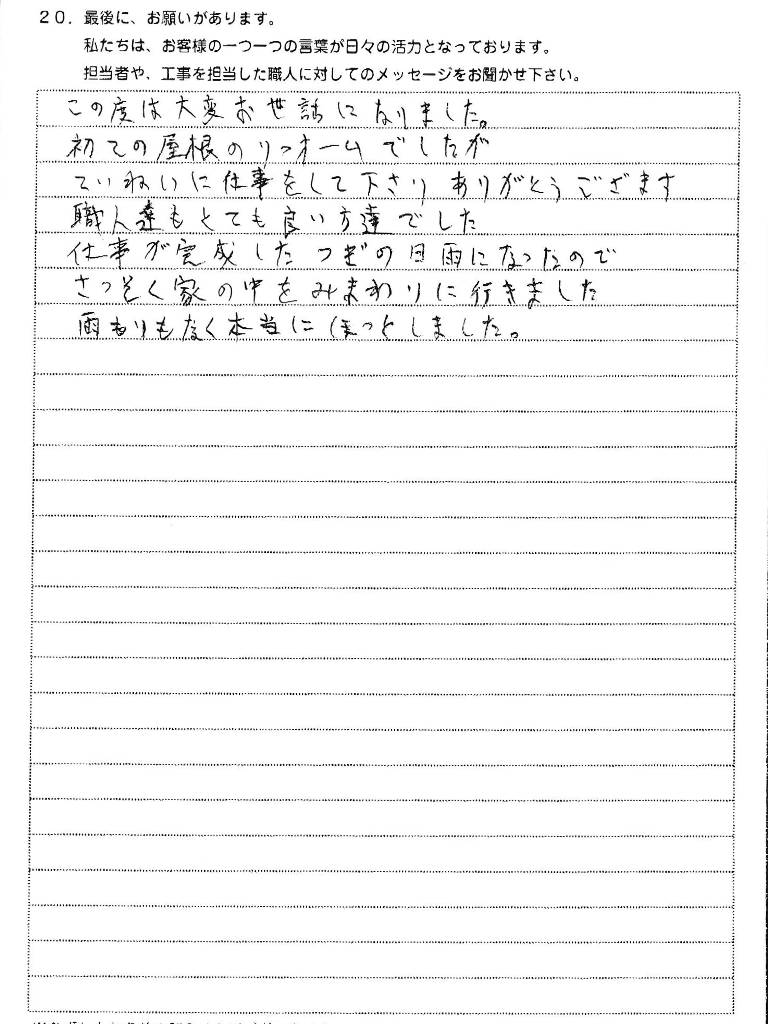 20．最後に、お願いがあります。
私たちは、お客様の一つ一つの言葉が日々の活力となっております。
担当者や、工事を担当した職人に対してのメッセージをお聞かせ下さい。
この度は大変お世話になりました。
初ての屋根のリフォームでしたが
ていねいに仕事をして下さり ありがとうございます
職人達もとても良い方達でした
仕事が完成したつぎの日雨になったので
さっそく家の中をみまわりに行きました
雨もりもなく本当にほっとしました。